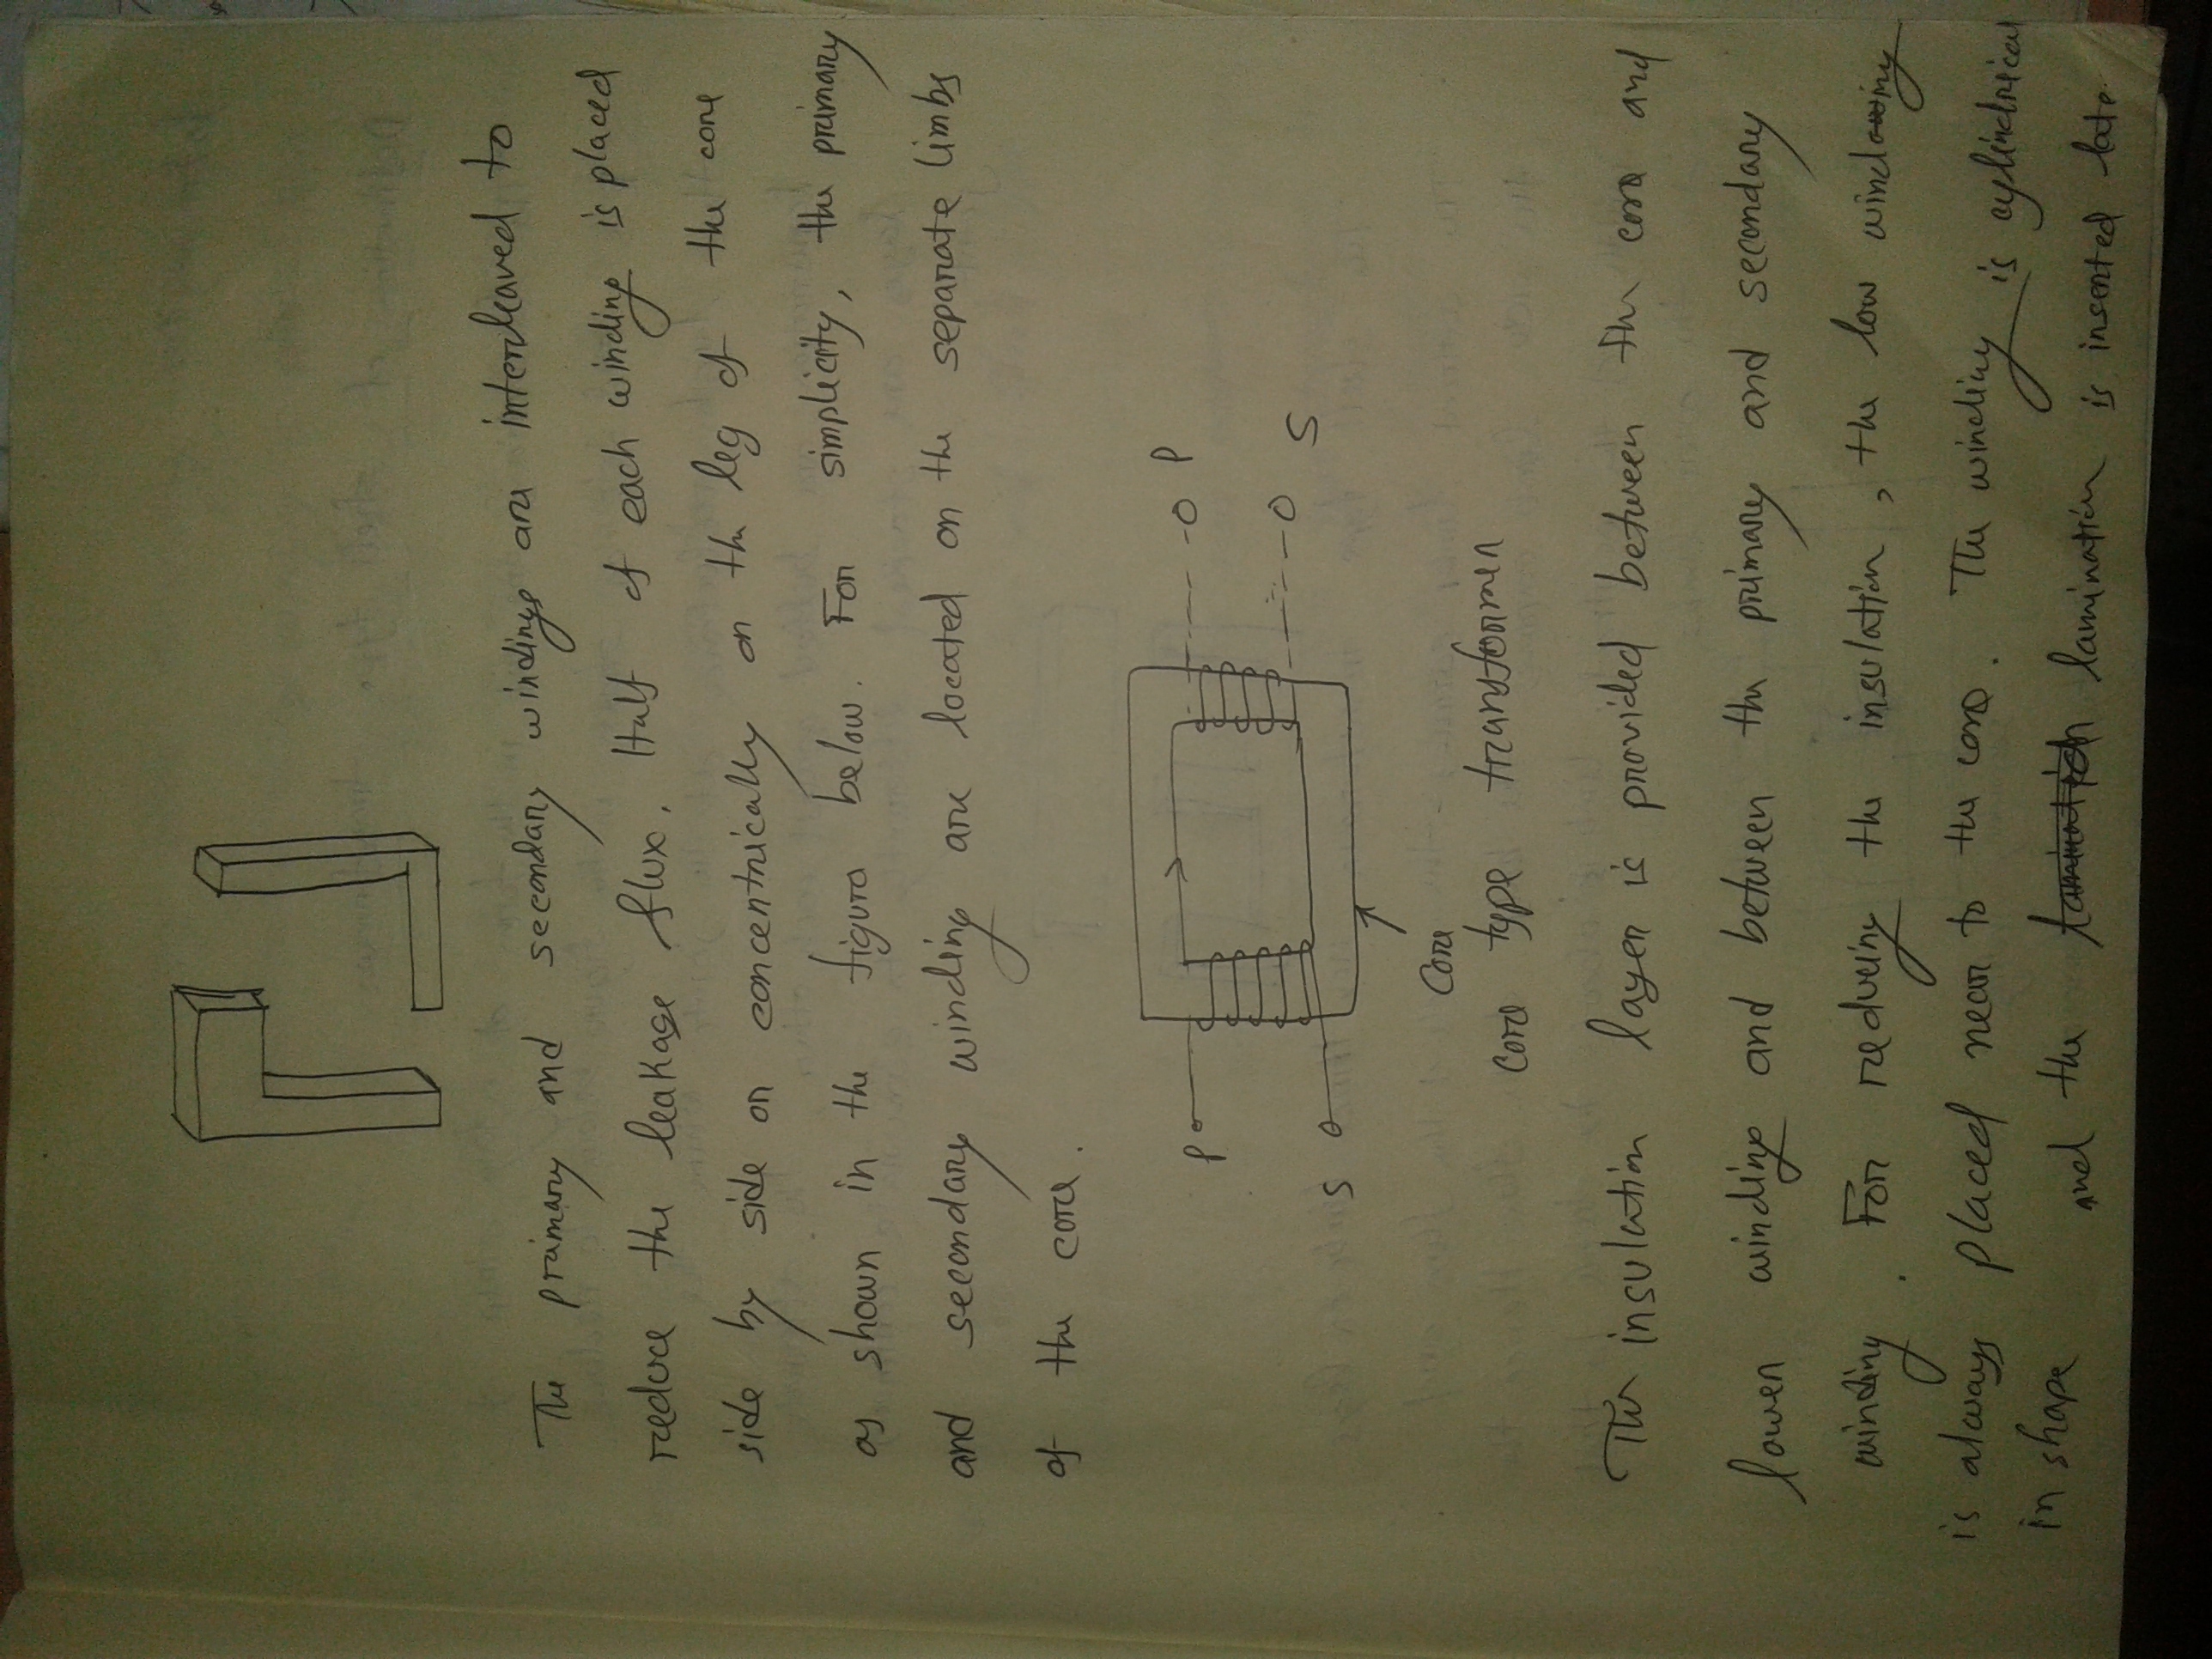 The primary and secondary windings are interleaved to
reduce the leakage flux. Half of each winding is placed
side by side or concentrically on the leg of the core
as shown in the figure below. For simplicity, the primary
and secondary winding are located on the separate limbs
of the core.
P P
S S
Core
Core type transformer
The insulation layer is provided between the core and
lower winding and between the primary and secondary
winding. For reducing the insulation, the low winding
is always placed near to the core. The winding is cylindrical
in shape and the lamination lamination is inserted late